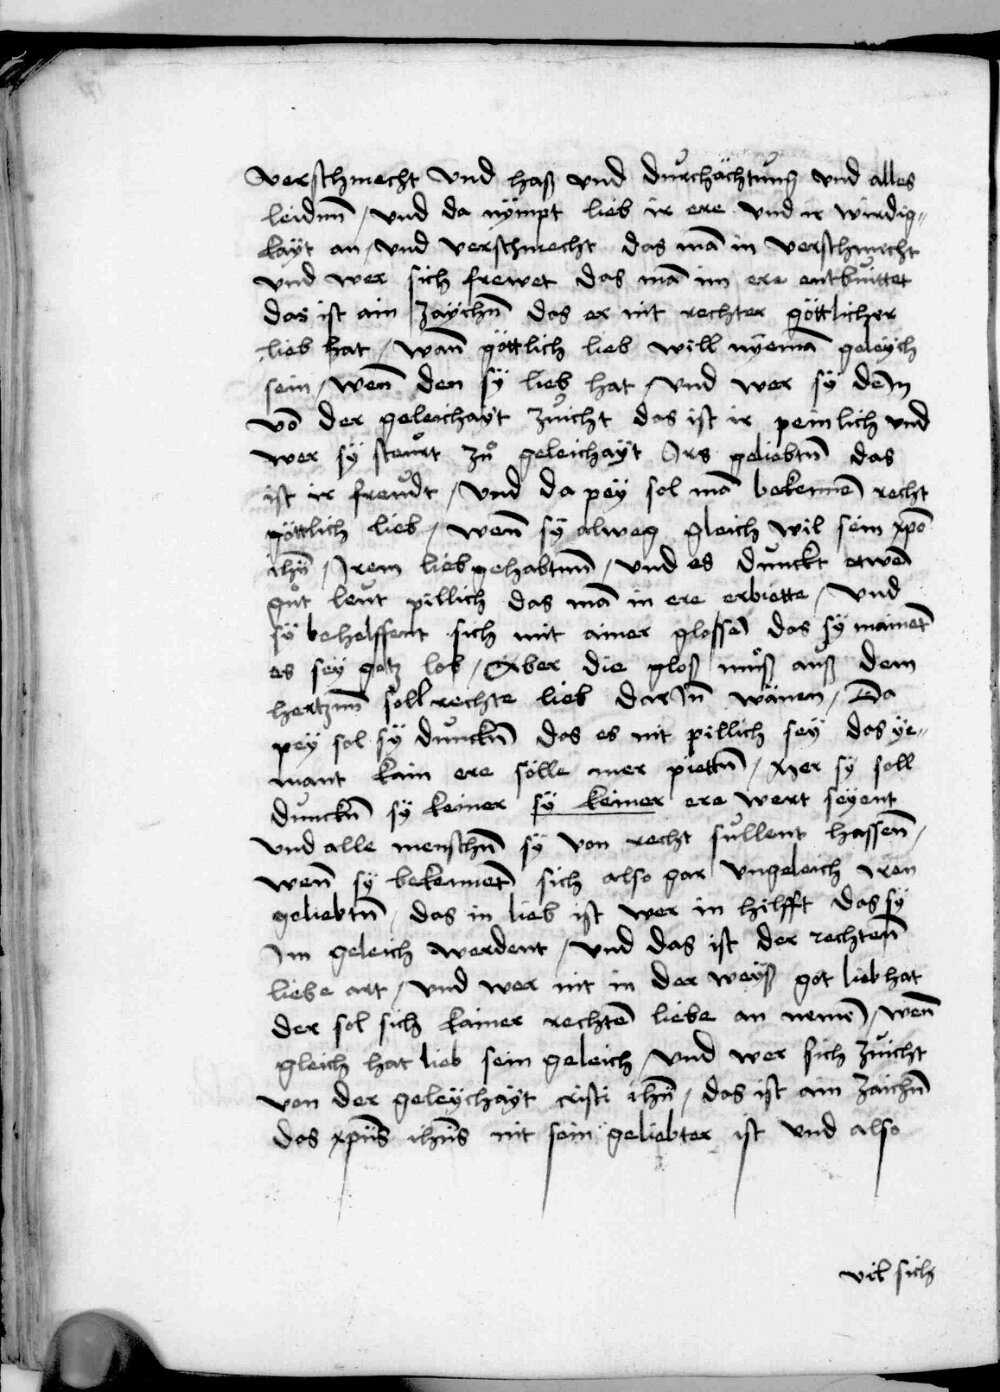 verschmecht vnd haß vnd durchächtung vnd alles
leidnn / vnd da nÿmpt lieb ir ere vnd ir wirdig„
kaÿt an / vnd verschmecht das mā in verschmecht
vnd wer sich frewet das mā im ere entbuittet
das ist ain zaÿchn̄ das er nit rechter göttlicher
lieb hat / wan̄ göttlich lieb will nÿemā geleÿch
sein / wen̄ den sÿ lieb hat / vnd wer sÿ den
vō der geleichaÿt zuicht das ist ir peinlich vnd
wer sÿ steurt zů geleichaÿt Irs geliebtn̄ das
ist ir freudt / vnd da peÿ sol mā bekennē recht
göttlich lieb / wen̄ sÿ alweg gleich wil sein xpō
ihū / Irem liebgehabtnn / vnd es dunckt etwē
gůt leut pillich das mā in ere erbiette / vnd
sÿ behelffent sich mit ainer glossē das sÿ mainēt
es seÿ gotz lob / Aber die gloß můß auß dem
hertznn söll rechte lieb darIn̄ wānen / Da
peÿ sol sÿ dunckn̄ das es nit pillich seÿ das ÿe„
mant kain ere sölle mer piettn̄ / Mer sÿ soll
dunckn̄ sÿ keiner sÿ keiner ere wert seÿent
vnd alle menschn̄ sÿ von recht süllent hassen̄ /
wen̄ sÿ bekennēt sich also gar vngeleich iren
geliebtn̄ / das in lieb ist wer in hilfft das sÿ
Im geleich werdent / vnd das ist der rechten̄
liebe art / vnd wer nit in der weÿß got lieb hat
der sol sich kainer rechtē liebe an nemē / wen̄
gleich hat lieb sein geleich / vnd wer sich zuicht
von der geleÿchaÿt cristi ihū / das ist ain zaichn̄
das xpūs ihūs nit sein geliebter ist vnd also
vil sich